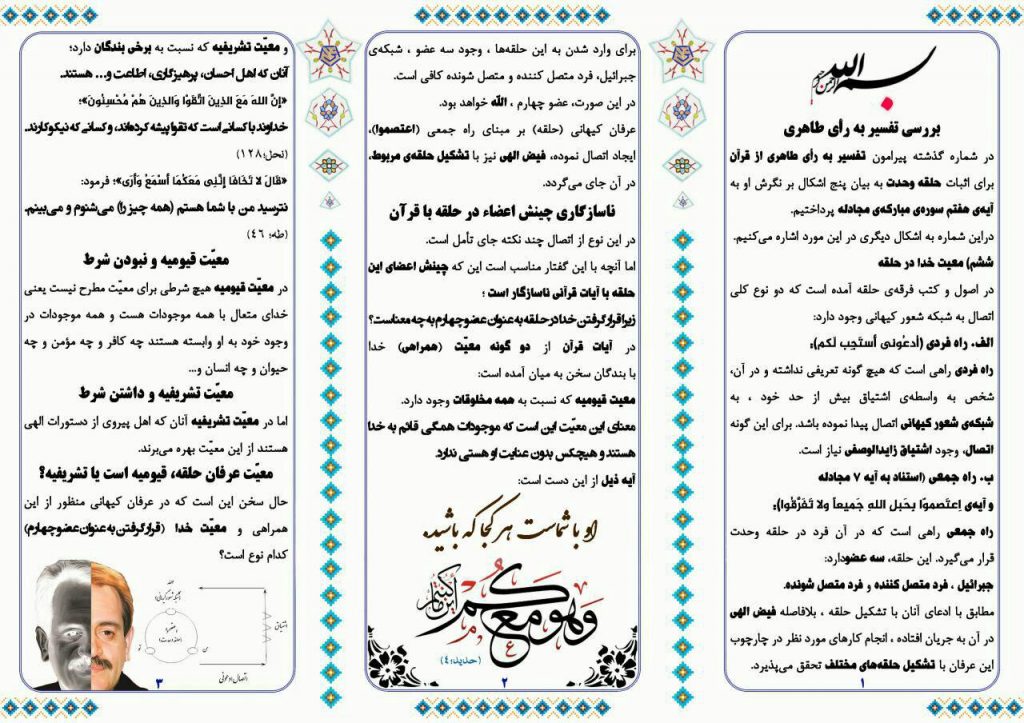 بسم الله الرحمن الرحیم
بررسی تفسیر به رأی طاهری
در شماره گذشته پیرامون تفسیر به رأی طاهری از قرآن
برای اثبات حلقه وحدت به بیان پنج اشکال بر نگرش او به
آیه‌ی هفتم سوره‌ی مبارکه‌ی مجادله پرداختیم.
دراین شماره به اشکال دیگری در این مورد اشاره می‌کنیم.
ششم) معیت خدا در حلقه
در اصول و کتب فرقه‌ی حلقه آمده است که دو نوع کلی
اتصال به شبکه شعور کیهانی وجود دارد:
الف. راه فردی (اُدعُونی اَستَجِب لَکم):
راه فردی راهی است که هیچ گونه تعریفی نداشته و در آن،
شخص به واسطه‌ی اشتیاق بیش از حد خود ، به
شبکه‌ی شعور کیهانی اتصال پیدا نموده باشد. برای این گونه
اتصال، وجود اشتیاق زایدالوصفی نیاز است.
ب. راه جمعی (استناد به آیه ۷ مجادله
و آیه‌ی اِعتَصموا بِحَبل الله جَمیعاً ولا تَفَرَّقُوا):
راه جمعی راهی است که در آن فرد در حلقه وحدت
قرار می‌گیرد. این حلقه، سه عضودارد:
جبرائیل ، فرد متصل کننده و فرد متصل شونده.
مطابق با ادعای آنان با تشکیل حلقه ، بلافاصله فیض الهی
در آن به جریان افتاده ، انجام کارهای مورد نظر در چارچوب
این عرفان با تشکیل حلقه‌های مختلف تحقق می‌پذیرد.
۱
برای وارد شدن به این حلقه‌ها ، وجود سه عضو ، شبکه‌ی
جبرائیل، فرد متصل کننده و متصل شونده کافی است.
در این صورت، عضو چهارم ، الله خواهد بود.
عرفان کیهانی (حلقه) بر مبنای راه جمعی (اعتصموا)،
ایجاد اتصال نموده، فیض الهی نیز با تشکیل حلقه‌ی مربوط،
در آن جای می‌گردد.
ناسازگاری چینش اعضاء در حلقه با قرآن
در این نوع از اتصال چند نکته جای تأمل است.
اما آنچه با این گفتار مناسب است این که چینش اعضای این
حلقه با آیات قرآنی ناسازگار است ؛
زیرا قرار گرفتن خدا در حلقه به عنوان عضو چهارم به چه معناست؟
در آیات قرآن از دو گونه معیّت (همراهی) خدا
با بندگان سخن به میان آمده است:
معیت قیومیه که نسبت به همه مخلوقات وجود دارد.
معنای این معیّت این است که موجودات همگی قائم به خدا
هستند و هیچکس بدون عنایت او هستی ندارد.
آیه ذیل از این دست است:
او با شماست هر کجا که باشید.
وَهُوَ مَعَكُمْ أَيْنَ مَا كُنْتُمْ
(حدید:۴)
۲
و معیّت تشریفیه که نسبت به برخی بندگان دارد؛
آنان که اهل احسان، پرهیزگاری، اطاعت و... هستند.
«إِنَّ اللهَ مَعَ الَّذِینَ اتَّقَوْا وَالَّذِینَ هُمْ مُحْسِنُونَ»؛
خداوند با کسانی است که تقوا پیشه کرده‌اند، و کسانی که نیکوکارند.
(نحل:۱۲۸)
«قَالَ لا تَخَافَا إِنَّنِی مَعَکُمَا أَسْمَعُ وَأَرَی»؛ فرمود:
نترسید من با شما هستم (همه چیز را) می‌شنوم و می‌بینم.
(طه: ۴۶)
معیّت قیومیه و نبودن شرط
در معیّت قیومیه هیچ شرطی برای معیّت مطرح نیست یعنی
خدای متعال با همه موجودات هست و همه موجودات در
وجود خود به او وابسته هستند چه کافر و چه مؤمن و چه
حیوان و چه انسان و...
معیّت تشریفیه و داشتن شرط
اما در معیّت تشریفیه آنان که اهل پیروی از دستورات الهی
هستند از این معیّت بهره می‌برند.
معیّت عرفان حلقه، قیومیه است یا تشریفیه؟
حال سخن این است که در عرفان کیهانی منظور از این
همراهی و معیّت خدا (قرار گرفتن به عنوان عضو چهارم)
کدام نوع است؟
اشتیاق
من
تو
اتصال ادعونی
۳